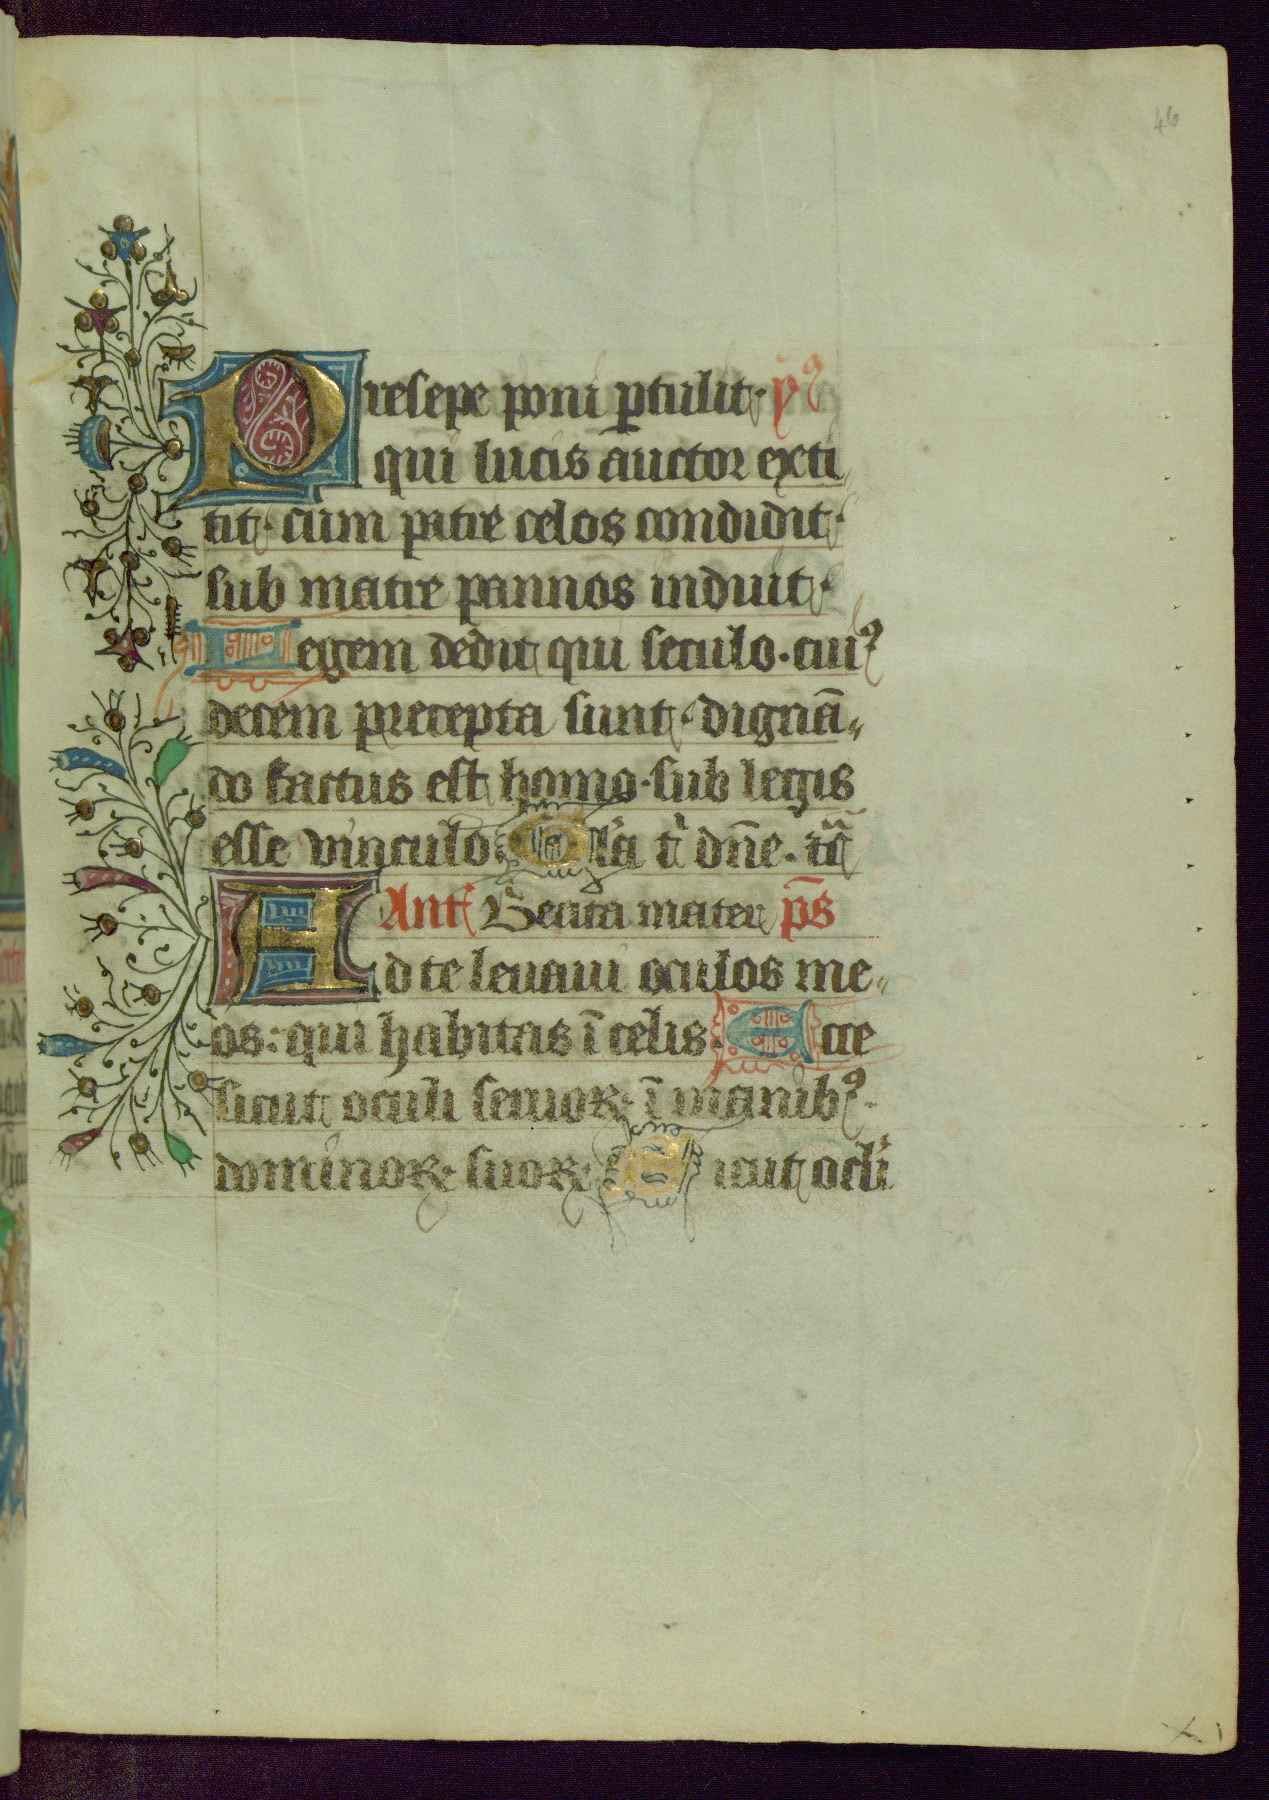 46
Presepe poni ꝑtulit· yꝰ
qui lucis auctor exti
tit· cum patre celos condidit·
sub matre pannos induit·
Legem dedit qui seculo·cuiꝰ
decem precepta sunt·dignā
do factus est homo·sub legis
esse vinculo· Gla t dn̄e·
Ant Beata mater ps̄
Ad te leuaui oculos me
os: qui habitas ī celis· Ecce
sicut oculi seruoꝝ· ī manibꝰ·
dominoꝝ· suoꝝ· Sicut ocli